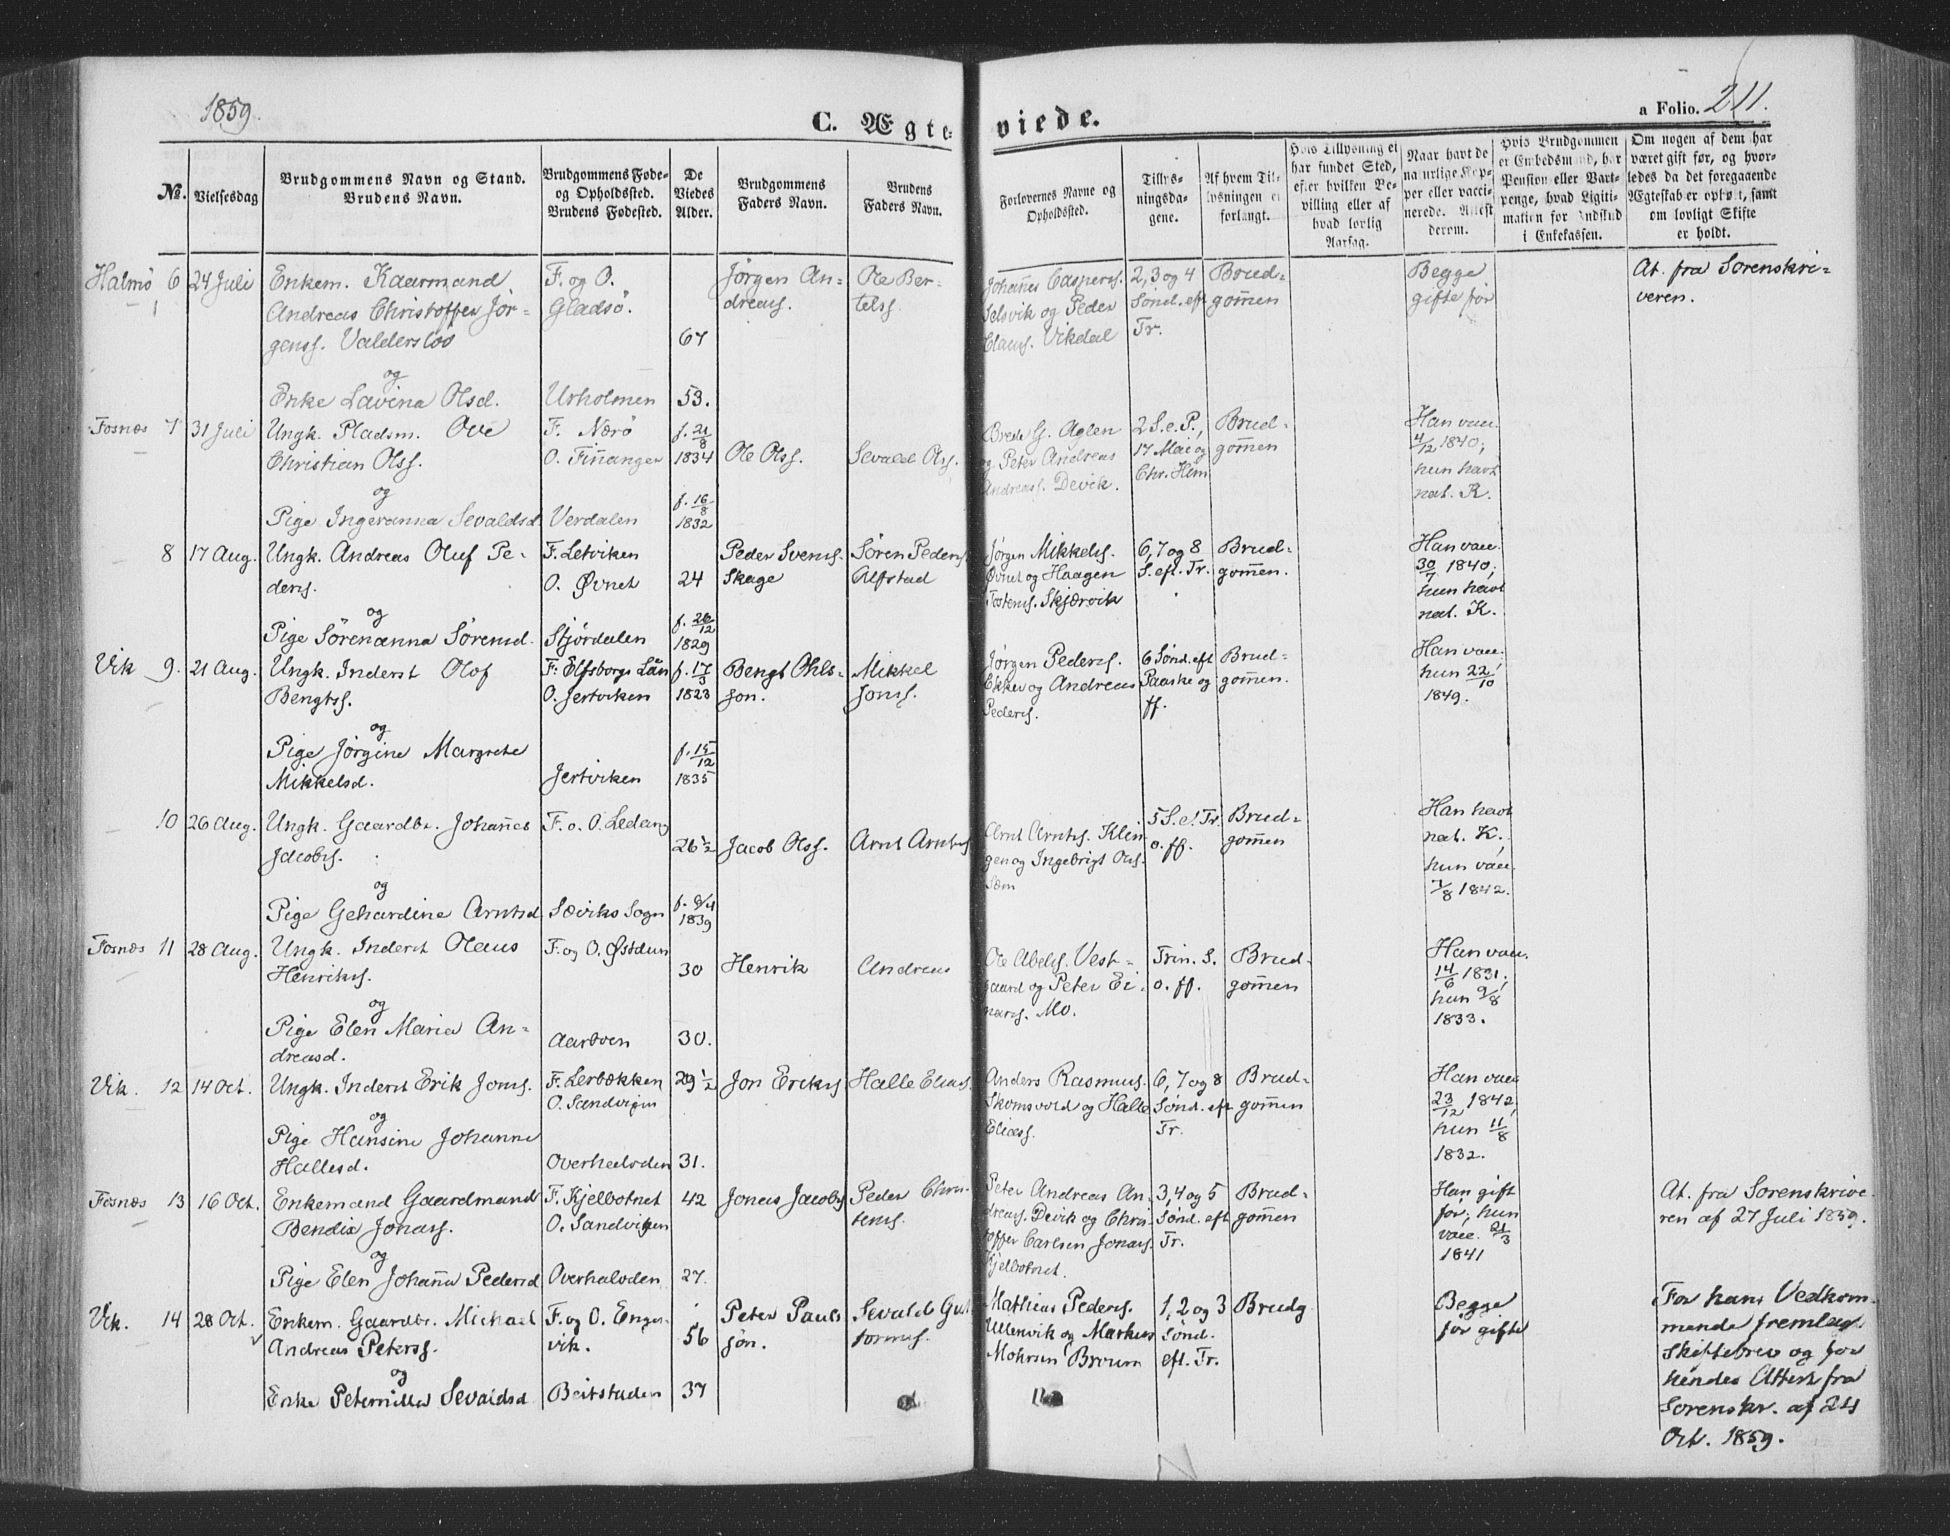 1859.
C. Ægteviede.
a Folio. 211.
№.
Vielsesdag
Brudgommens Navn og Stand.
Brudens Navn.
Brudgommens Føde-
og Opholdssted.
Brudens Fødested.
De
Viedes
Alder.
Brudgommens
Faders Navn.
Brudens
Faders Navn.
Forlovernes Navne og
Opholdssted.
Tillys-
ningsda-
gene.
Af hvem Til-
lysningen er
forlangt.
Hvis Tillysning ei
har fundet Sted,
efter hvilken Be-
villing eller af
hvad lovlig
Aarsag.
Naar havt de
naturlige Kop-
per eller vacci-
nerede. Attest
derom.
Hvis Brudgommen
er Embedsmand, har
Pension eller Vart-
penge, hvad Ligiti-
mation for Indskud
i Enkekassen.
Om nogen af dem har
været gift før, og hvor-
ledes da det foregaaende
Ægteskab er ophævet, samt
om lovligt Skifte
er holdt.
Halmø 6 24 Juli
Enkem. Kaarmand
Andreas Christoffer Jør-
genss. Valdersloo
og
Enke Lavina Olsd.
F. og O.
Gladsö.
Urholmen
67
53.
Jørgen An-
dreass.
Ole Ber-
telss.
Johañes Caspers.
Selsvik og Peder
Clauss. Vikdal
2, 3 og 4
Sønd. eft
Tr.
Brud-
gom̄en
Begge
gifte før
At. fra Sorenskri-
veren.
Fosnæs 7 31 Juli
Ungk. Pladsm. Ove
Christian Olss.
og
Pige Ingeranna Sevaldsd.
F. Nærö
O. Fiñanger
Verdalen
f. 21/8
1834
f. 16/8
1832
Ole Olss.
Sevald Ols.
Brede G. Aglen
og Peter Andreas
Andreass. Devik.
2 S. e. P.,
17 Mai og
Chr. Him
Brud-
gom̄en
Han vacc.
4/12 1840;
hun havt
nat. K.
8 17 Aug.
Ungk. Andreas Oluf Pe-
derss.
og
Pige Sörenanna Sörensd.
F. Letviken
O. Øvnet
Stjördalen
24
f. 26/12
1829
Peder Svenss.
Skage
Sören Peders.
Alfstad
Jørgen Mikkels.
Øvnet og Haagen
Tostenss. Skjærvik
6, 7 og 8
S. eft. Tr.
Brud-
gom̄en.
Han vacc.
30/7 1840;
hun havt
nat. K.
Vik 9. 21 Aug.
Ungk. Inderst Olof
Bengtss.
og
Pige Jørgine Margrete
Mikkelsd.
F. Elfsborgs Län
O. Jertviken
Jertviken
f. 17/3
1823
f. 15/12
1835
Bengt Ohls-
son.
Mikkel
Jonss.
Jørgen Pederss.
Ekker og Andreas
Pederss.
6 Sønd. eft
Paaske og
ff.
Brud-
gom̄en.
Han vacc.
hun 22/10
1849.
10 26 Aug.
Ungk. Gaardbr. Johañes
Jacobss.
og
Pige Gehardine Arntsd.
F. o. O. Ledang
Sæviks Sogn
26 1/2
f. 9/4
1839
Jacob Olss.
Arnt Arntss
Arnt Arntss. Klin
gen og Ingebrigt Ols.
Sæm
5 S. e. Tr.
o. ff.
Brud-
gom̄en
Han havt
nat. K.,
hun vacc.
7/8 1842.
Fosnæs 11 28 Aug.
Ungk. Inderst Olaus
Henrikss.
og
Pige Elen Maria An-
dreasd.
F. og O. Østduun
Aarboen
30
30.
Henrik
Andreas
Ole Abelss. Vest-
gaard og Peter Ei-
narss. Mo.
Trin. S.
o. ff.
Brud-
gom̄en
Han vacc.
14/6 1831;
hun 9/8
1833.
Vik. 12 14 Oct.
Ungk. Inderst Erik Jonss.
og
Pige Hansine Johanna
Hallesd.
F. Lerbækken
O. Sandvigen
Overhaloden
29 1/2
31.
Jon Erikss
Halle Elias.
Anders Rasmuss.
Skomsvold og Halle
Eliass.
6, 7 og 8
Sønd. eft
Tr.
Brud-
gom̄en
Han vacc.
23/12 1842,
hun 11/8
1832.
Fosnæs 13 16 Oct.
Enkemand Gaardmand
Bendix Jonass.
og
Pige Elen Johaña Pedersd
F. Kjelbotnet
O. Sandviken
Overhaloden
42
27.
Jonas Jacobs
Peder Chris-
tenss.
Peter Andreas An-
dreass. Devik og Chri
stoffer Carlsen Jonass.
Kjelbotnet.
3, 4 og 5
Sønd. eft
Tr.
Brud-
gom̄en
Han gift
før, hun
vacc. 21/3
1841
At. fra Sorenskrive-
ren af 27 Juli 1859.
Vik. 14 28 Oct.
Enkem. Gaardbr. Michael
Andreas Peterss.
og
Enke Peternilla Sevaldsd
F. og O. Enges-
vik.
Beitstaden
56
37
Peter Pauls
søn.
Sevald Gut
tormss.
Mathias Pederss.
Ullenvik og Markus
Mohrsen Broum
1, 2 og 3
Sønd.
eft. Tr.
Brudg.
Begge
før gifte
For hans Vedkom-
mende fremlagt
Skiftebrev og for
hendes Attest fra
Sorenskr. af 24
Oct. 1859.